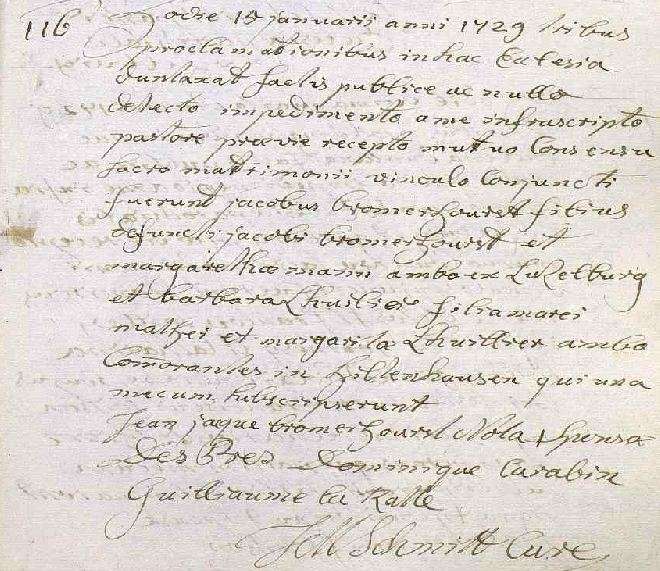 116 hodie 15 januarii anni 1729 tribus
proclamationibus in hac Eclesia
duntaxat factis publice ac nullo
detecto impedimento a me infrascripto
pastore prævie recepto mutuo Consensu
sacro matrimonii vinculo Conjuncti
fuerunt jacobus bromerhourst filius
defuncti jacobi bromerhourst et
margarethæ manni ambo ex Luxelburg
et barbara Lhuilier filia marci
mathei et margarita Lhuillier ambo
Com̄orantes in Lillenhausen qui una
mecum subscripserunt
Jean jaque bromerhourst Nota + sponsæ
Des Pres Dominique Carabin
Guilliaume la Ralle
Schmitt Cure